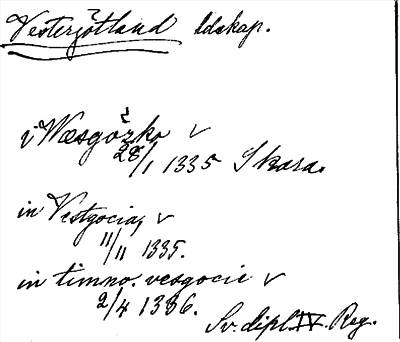 Vesterjötland ldskap.
i Wæsgözko ✓
28/1 1335 Skara.
in Vestgocia, ✓
11/11 1335.
in timno. vesgocie ✓
2/4 1336.
Sv. dipl. IV. Reg.